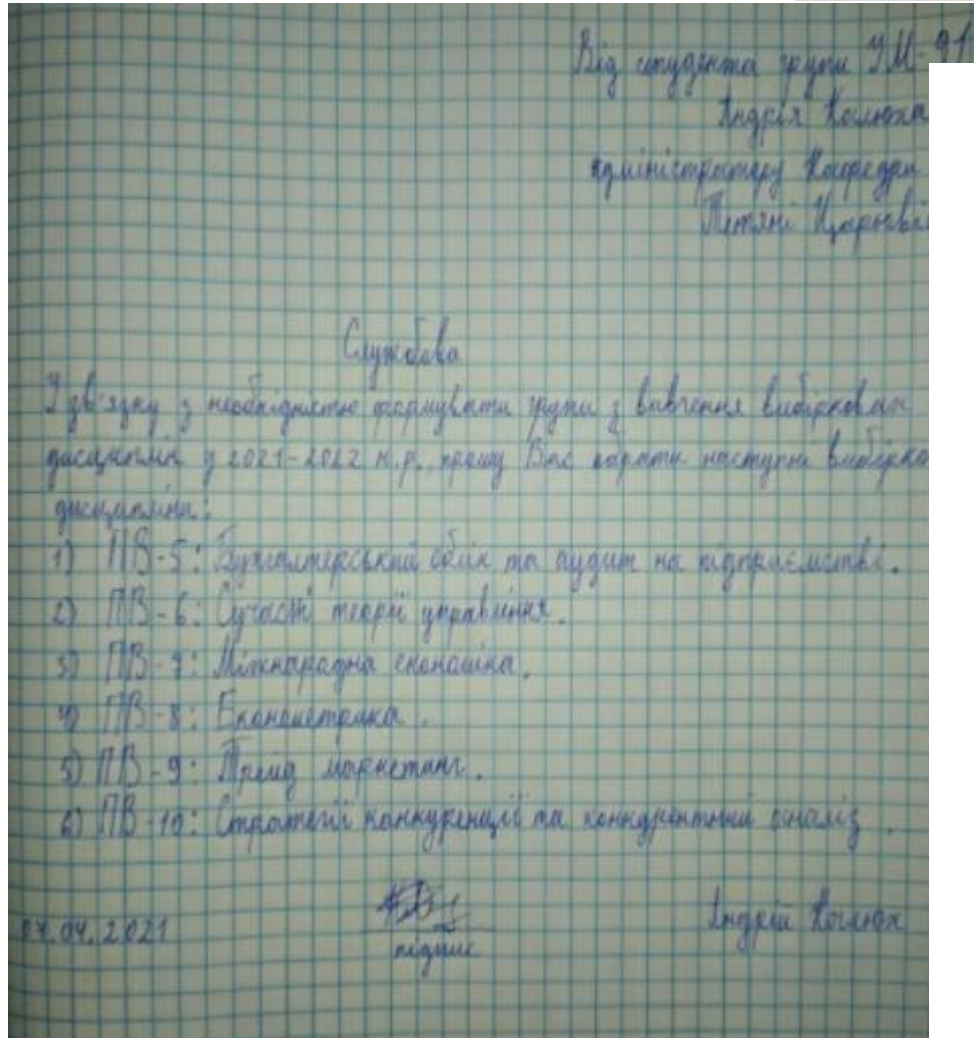 Від студента групи УМ-91
Андрія
адміністратору Кафедри
Службова
У зв'язку з необхідністю формувати групи з вивчення вибіркових
дисциплін у 2021-2022 н.р., прошу Вас наступні
дисципліни:
1) ПВ-5: Бухгалтерський облік та аудит на підприємстві.
2) ПВ-6: Сучасні теорії управління.
3) ПВ-7: Міжнародна економіка.
4) ПВ-8: Економетрика.
5) ПВ-9: Трейд маркетинг.
6) ПВ-10: Стратегії конкуренції та конкурентний аналіз.
04.04.2021 підпис Андрій